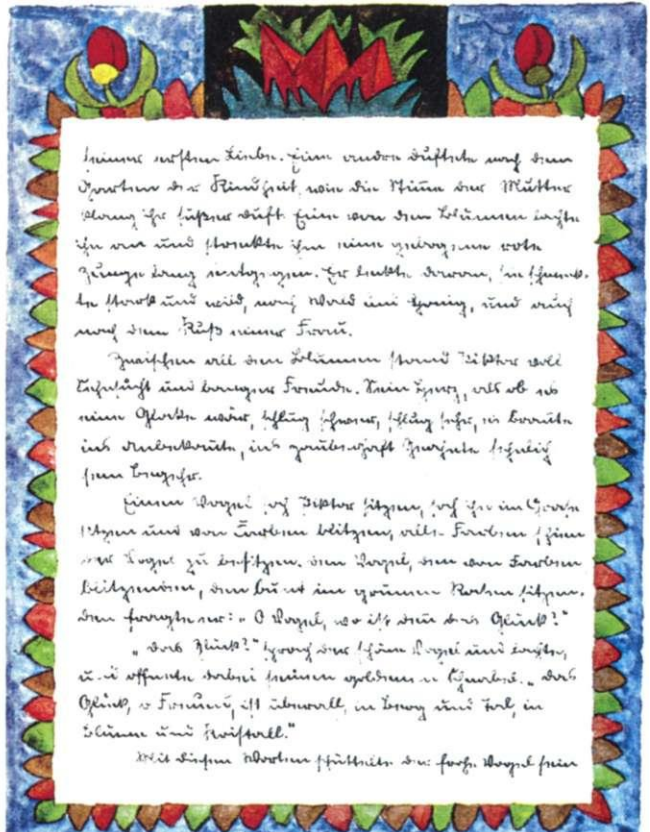 seiner ersten Liebe. Eine andre duftete nach dem
Garten der Kindheit, wie die Stimme der Mutter
klang ihr süßer Duft. Eine von den Blumen lachte
ihn an und streckte ihm eine gebogene rote
Zunge lang entgegen. Er leckte daran, sie schmeck-
te stark und wild, nach Wald und Honig, und auch
nach dem Kuß einer Frau.
Zwischen all den Blumen stand Piktor voll
Sehnsucht und banger Freude. Sein Herz, als ob es
eine Glocke wär, schlug schwer, schlug sehr, es brannte
ins Unbekannte, ins zauberhaft Geahnte sehnlich
sein Begehr.
Einen Vogel sah Piktor sitzen, sah ihn im Grase
sitzen und von Farben blitzen, alle Farben schien
der Vogel zu besitzen. Den Vogel, den von Farben
blitzenden, den bunt im grünen Rasen sitzen-
den fragte er: „O Vogel, wo ist denn das Glück?“
„Das Glück?“ sprach der schöne Vogel und lachte,
und öffnete dabei seinen goldenen Schnabel. „Das
Glück, o Freund, ist überall, in Berg und Tal, in
Blume und Kristall.“
Mit diesen Worten schüttelte der frohe Vogel sein